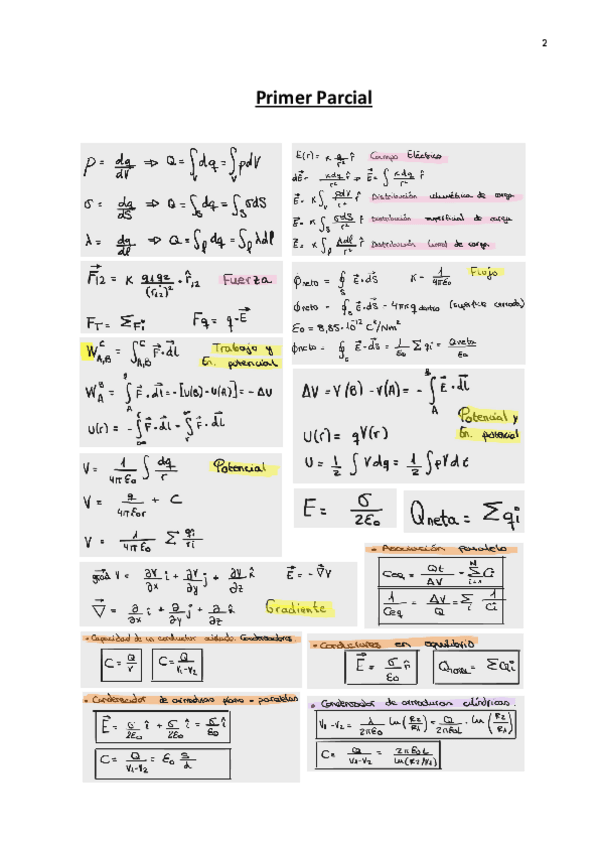 2
Primer Parcial
ρ = dq/dV ⇒ Q = ∫_V dq = ∫_V ρdV
σ = dq/dS ⇒ Q = ∫_S dq = ∫_S σdS
λ = dq/dl ⇒ Q = ∫_ρ dq = ∫_ρ λdl
E(r) = K q/r² r̂ Campo Eléctrico
dE⃗ = Kdq/r² r̂ ⇒ E⃗ = ∫ Kdq/r² r̂
E⃗ = K ∫_V ρdV/r² r̂ Distribución volumétrica de carga
E⃗ = K ∫_S σdS/r² r̂ Distribución superficial de carga
E⃗ = K ∫_ρ λdl/r² r̂ Distribución lineal de carga
F⃗12 = K q1q2/(r12)² · r̂12 Fuerza
FT = ΣFi Fq = q·E⃗
ϕneto = ∮_S E⃗·dS⃗ K = 1/4πε0 Flujo
ϕneto = ∮_S E⃗·dS⃗ = 4πKq dentro (superficie cerrada)
ε0 = 8,85·10⁻¹² C²/Nm²
ϕneto = ∮_S E⃗·dS⃗ = 1/ε0 Σqi = Qneta/ε0
W^C_A,B = ∫^C_A,B F⃗·dl⃗ Trabajo y
En. potencial
W^B_A = ∫^B_A F⃗·dl⃗ = -[U(B)-U(A)] = -ΔU
U(r) = -∫^r_∞ F⃗·dl = ∫^∞_r F⃗·dl
ΔV = V(B) - V(A) = -∫^B_A E⃗·dl⃗
Potencial y
En. potencial
U(r) = qV(r)
U = 1/2 ∫Vdq = 1/2 ∫ρVdτ
V = 1/4πε0 ∫ dq/r Potencial
V = q/4πε0r + C
V = 1/4πε0 Σ qi/ri
E = σ/2ε0
Qneta = Σqi
grad V = ∂V/∂x i + ∂V/∂y j + ∂V/∂z k E⃗ = -∇V
∇⃗ = ∂/∂x i + ∂/∂y j + ∂/∂z k Gradiente
• Asociación paralelo
Ceq = Qt/ΔV = Σ^N_i=1 Ci
1/Ceq = ΔV/Q = Σ_i 1/Ci
• Capacidad de un conductor aislado. Condensadores.
C = Q/V C = Q/V1-V2
• Conductores en equilibrio
E⃗ = σ/ε0 n̂ ΣQi
• Condensador de armaduras plano-paralelas
E⃗ = σ/2ε0 î + σ/2ε0 î = σ/ε0 î
C = Q/V1-V2 = ε0 S/d
• Condensador de armaduras cilíndricas.
V1-V2 = λ/2πε0 ln(R2/R1) = Q/2πε0L · ln(R2/R1)
C = Q/V1-V2 = 2πε0L/ln(R2/R1)